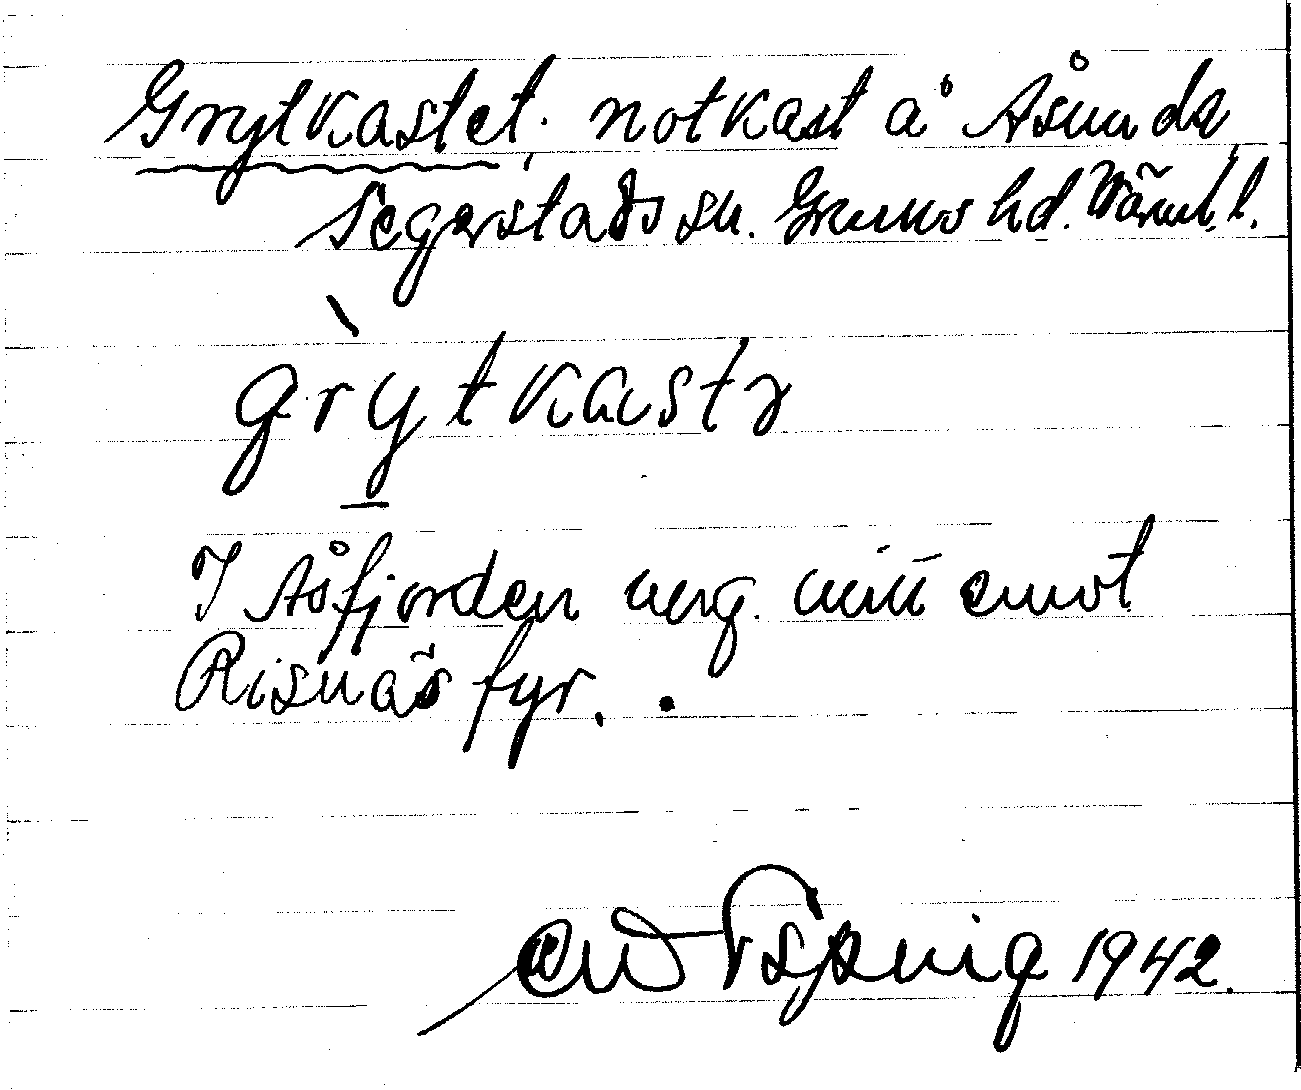 Grytkastet, notkast å Åsunda
Segerstads sn. Grums hd. Värml. l.
grỳtkastə
I Åsfjorden ung. mitt emot
Risnäs fyr.
1942.